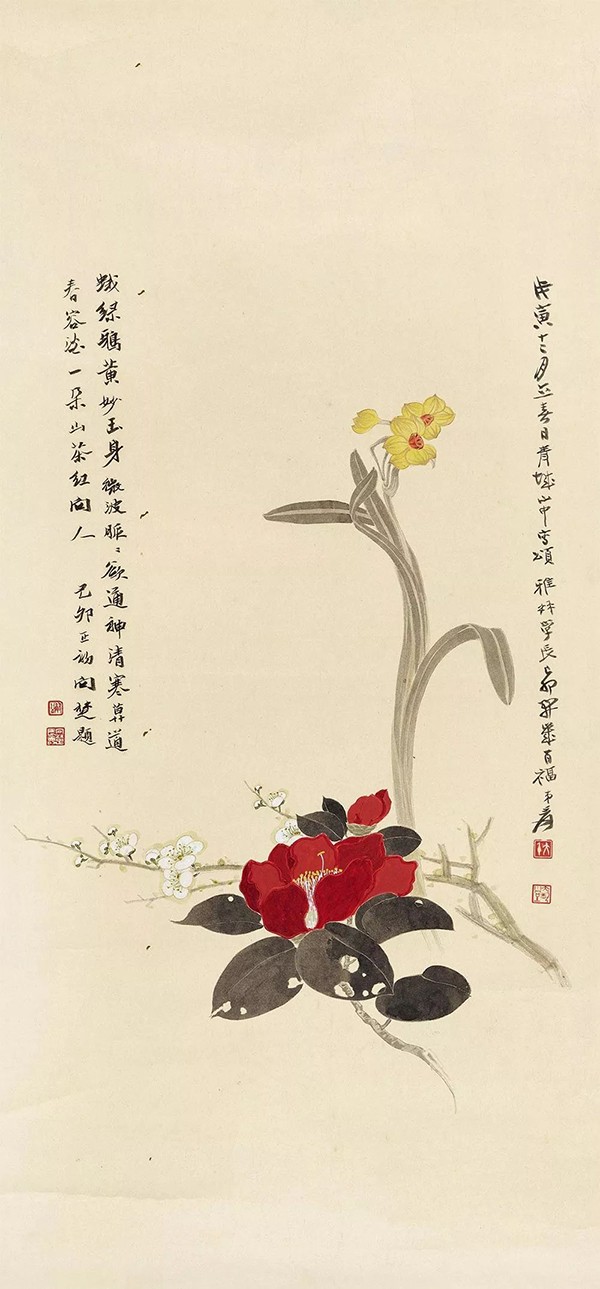 戊寅十二月立春日青城山中寫頌 雅材學長己卯開歲百福 弟爰
蛾綠鵶黃妙玉身微波脈〻欲通神清寒莫道
春容澹一朵山茶紅向人 己卯正初向楚題